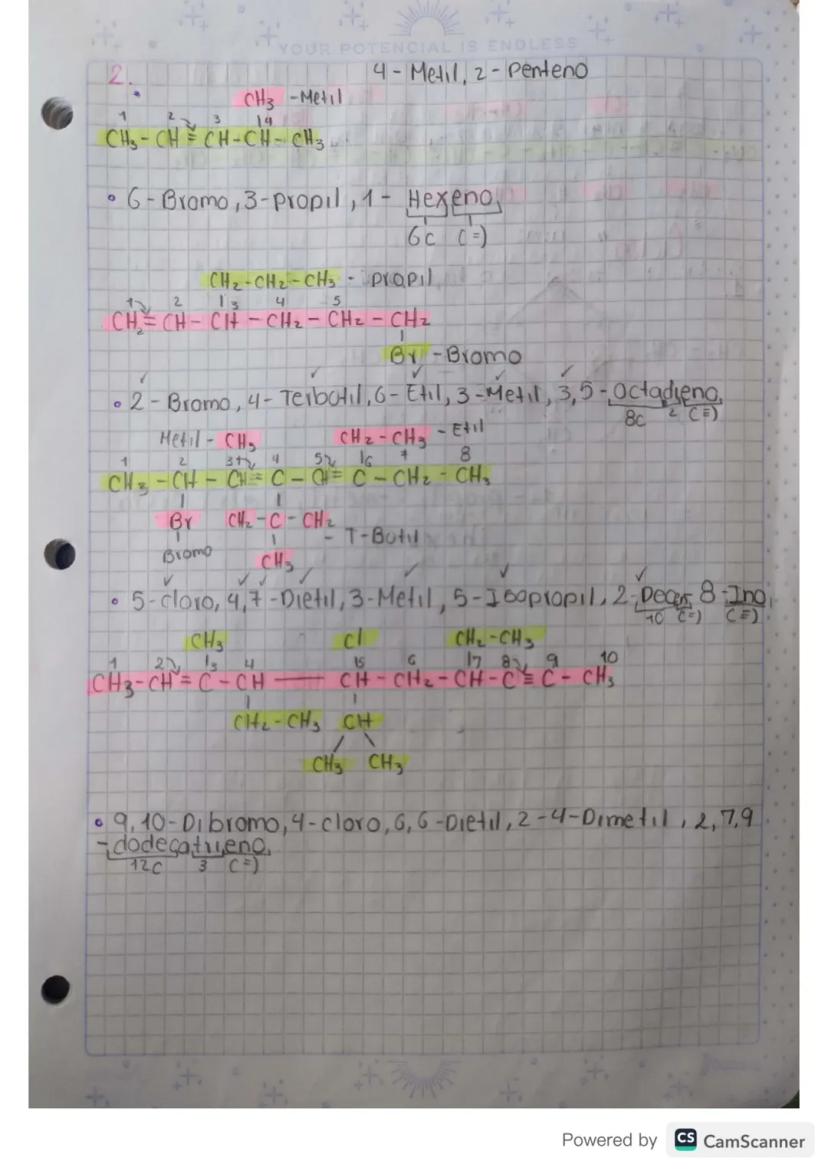 YOUR POTENCIAL IS ENDLESS
2. 4 - Metil, 2 - Penteno
CH3 - Metil
1 2 3 4
CH3 - CH = CH - CH - CH3
6 - Bromo, 3 - propil, 1 - Hexeno
6c (=)
CH2 - CH2 - CH3 - propil
1 2 3 4 5
CH2 = CH - CH - CH2 - CH2 - CH2
Br - Bromo
2 - Bromo, 4 - Terbutil, 6 - Etil, 3 - Metil, 3,5 - Octadieno
8c 2 (=)
Metil - CH3 CH2 - CH3 - Etil
1 2 3 4 5 6 7 8
CH3 - CH - CH = C - CH = C - CH2 - CH3
Br CH2 - C - CH2
Bromo - T-Butil
CH3
5 - cloro, 4,7 - Dietil, 3 - Metil, 5 - Isopropil, 2 - Decen, 8 - Ino
10 (=) (≡)
CH3 Cl CH2 - CH3
1 2 3 4 5 6 7 8 9 10
CH3 - CH = C - CH — CH - CH2 - CH - C ≡ C - CH3
CH2 - CH3 CH
CH3 CH3
9,10 - Dibromo, 4 - cloro, 6,6 - Dietil, 2 - 4 - Dimetil, 2,7,9
- dodecatrieno
12c 3 (=)
Powered by CS CamScanner